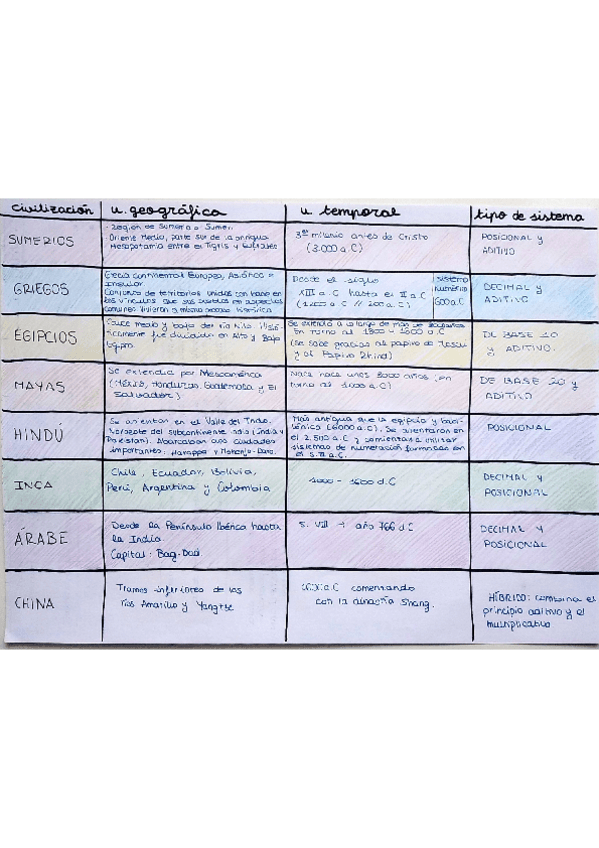 civilización u. geográfica u. temporal tipo de sistema
SUMERIOS
- Región de Sumeria o Sumer.
- Oriente Medio, parte sur de la antigua
Mesopotamia entre el Tigris y Eúfrates
3er milenio antes de Cristo
(3.000 a.C)
POSICIONAL y
ADITIVO
GRIEGOS
Grecia continental Europea, Asiática e
Insular
Conjunto de territorios unidos con base en
los vínculos que sus
comunes vivieron a misma histórica
Desde el siglo
XIII a.C hasta el II a.C
(1200 a.C // 200 a.C)
sistema
numérico
600 a.C
DECIMAL y
ADITIVO
EGIPCIOS
Cauce medio y bajo del río Nilo.
fue dividido en Alto y Bajo
Se extendió a lo largo de más de
En torno al 1800 - 1600 a.C
(Se sabe gracias al papiro de
y al Papiro Rhind)
DE BASE 10
y ADITIVO.
MAYAS
Se extendía por Mesoamérica
(México, Honduras, Guatemala y El
Salvador)
Nace hace unos 3000 años (en
torno al 1000 a.C)
DE BASE 20 y
ADITIVO
HINDÚ
Se asientan en el Valle del Indo.
Noroeste del subcontinente indio (India y
Pakistan). Abarcaban dos ciudades
importantes: Harappa y Mohenjo-Daro.
Más antigua que la egipcia y babi-
lónica (6000 a.C). Se asentaron en
el 2.500 a.C y comienzan a utilizar
sistemas de numeración
el S.III a.C.
POSICIONAL
INCA
Chile, Ecuador, Bolivia,
Perú, Argentina y Colombia
1000 - 1600 d.C
DECIMAL Y
POSICIONAL
ÁRABE
Desde la Península Ibérica hasta
la India.
Capital: Bag-Dad
S. VIII → año 766 d.C
DECIMAL Y
POSICIONAL
CHINA
Tramos inferiores de los
ríos Amarillo y Yangtse
a.C comenzando
con la dinastía Shang.
HÍBRIDO: combina el
principio aditivo y el
multiplicativo